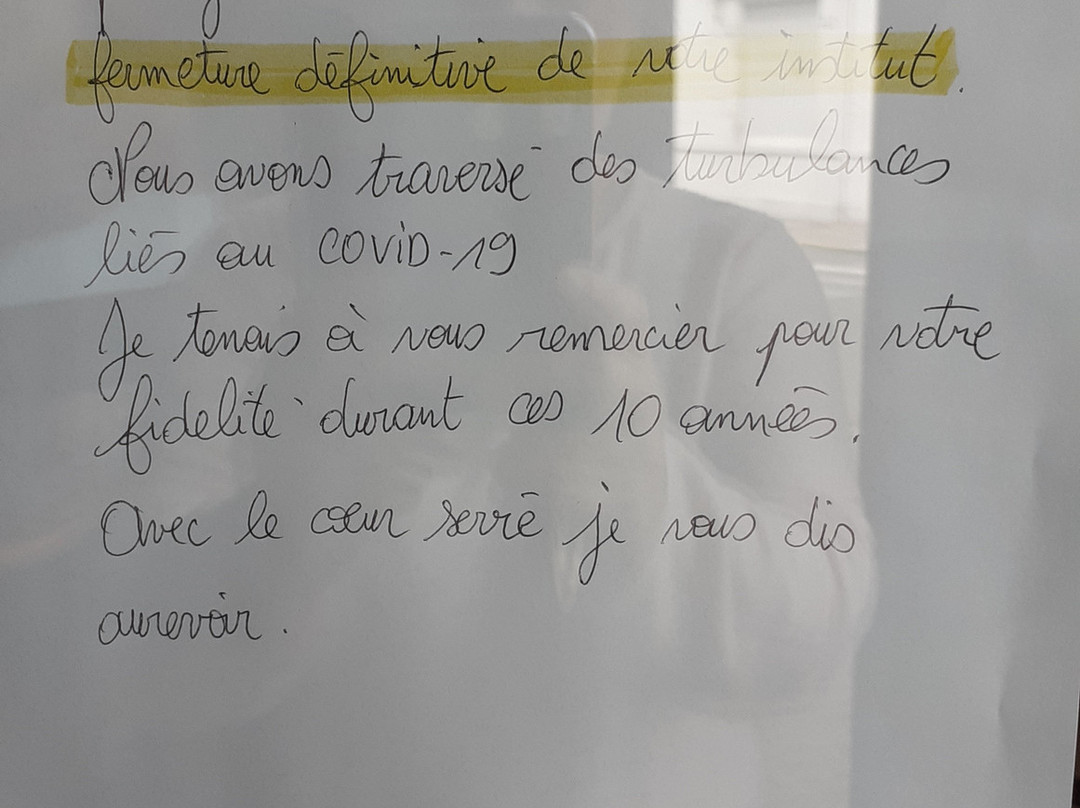 fermeture définitive de votre institut.
Nous avons traversé des turbulances
liés au COViD-19
Je tenais à vous remercier pour votre
fidelité durant ces 10 années.
Avec le cœur serré je vous dis
aurevoir.